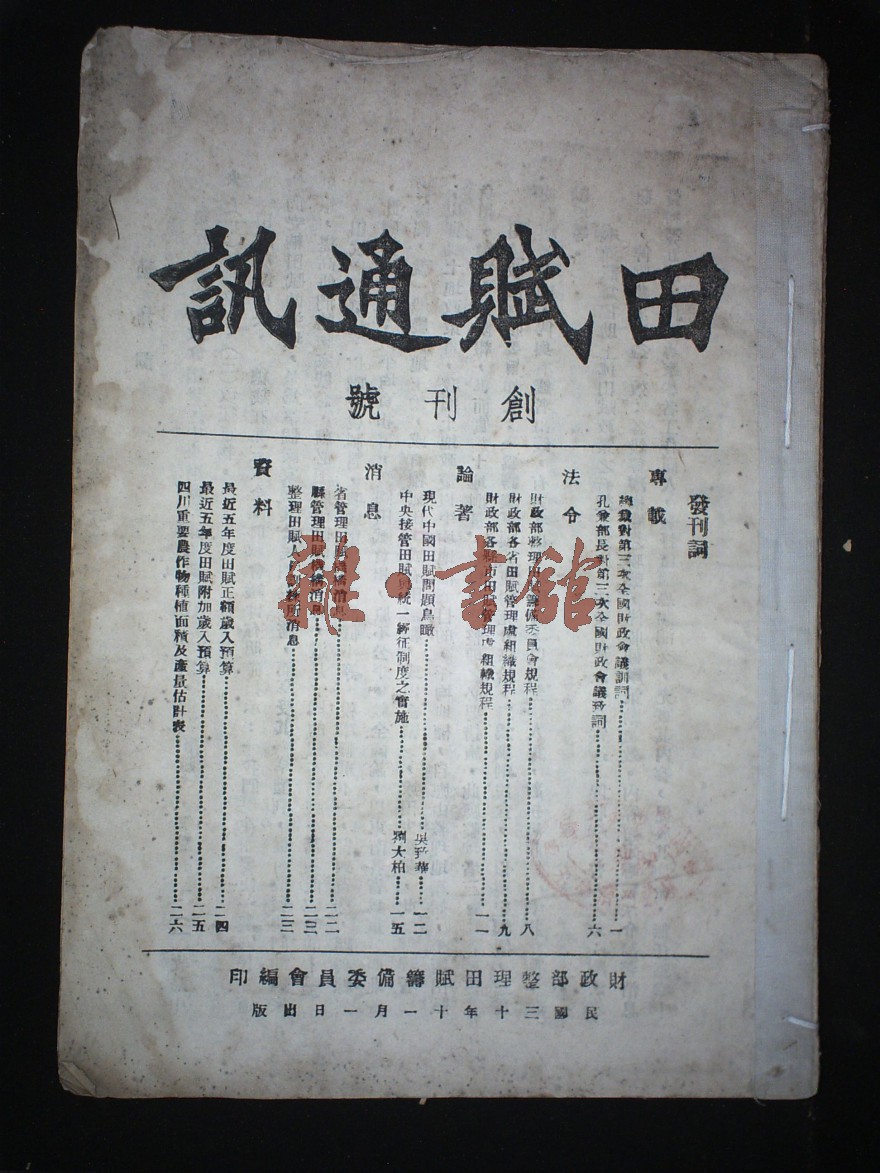 田賦通訊
創刊號
發刊詞
專載
總裁對第三次全國財政會議訓詞……一
孔兼部長對第三次全國財政會議致詞……六
法令
財政部整理田賦籌備委員會規程……八
財政部各省田賦管理處組織規程……九
財政部各縣市田賦管理處組織規程……一一
論著
現代中國田賦問題鳥瞰……吳致華 一二
中央接管田賦與統一經征制度之實施……劉大柏 一五
消息
省管理田賦機構消息……二二
縣管理田賦機構消息……二三
整理田賦人員訓練所消息……二三
資料
最近五年度田賦正額歲入預算……二四
最近五年度田賦附加歲入預算……二五
四川重要農作物種植面積及產量估計表……二六
財政部整理田賦籌備委員會編印
民國三十年十一月一日出版
雅·書館